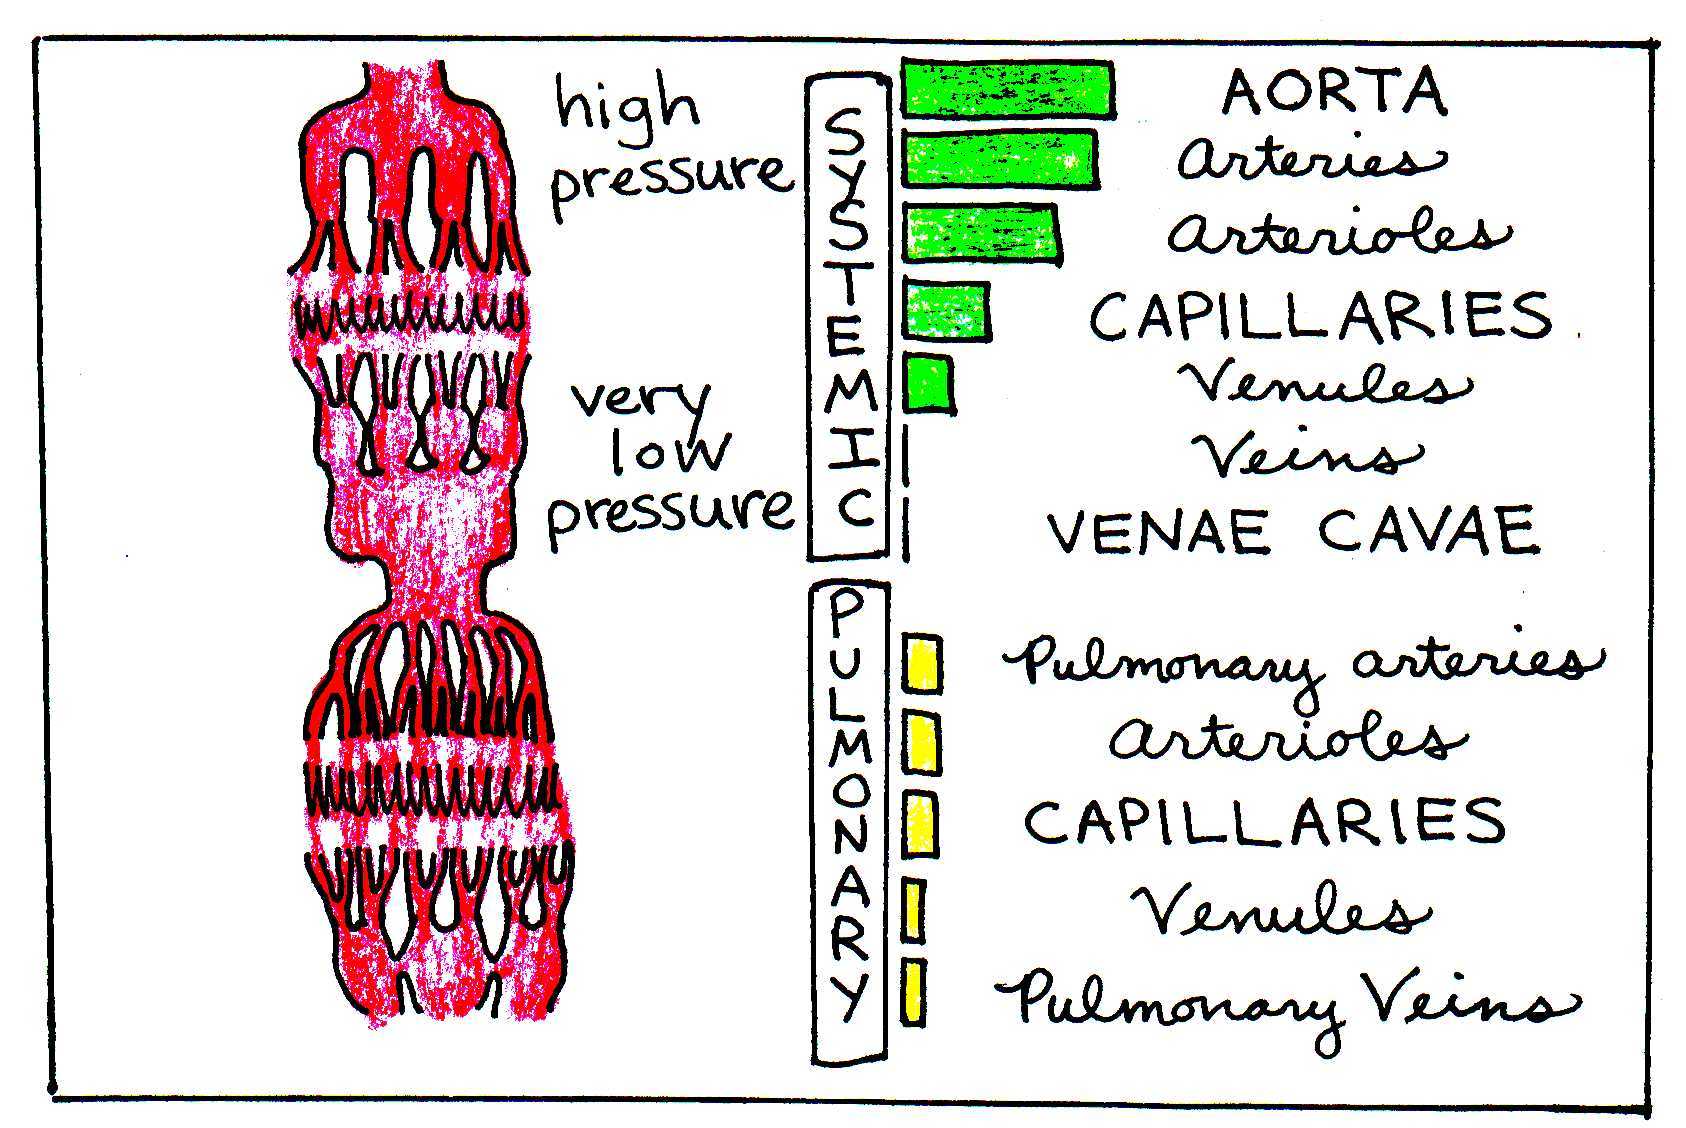 high
pressure
very
low
pressure
SYSTEMIC
AORTA
Arteries
Arterioles
CAPILLARIES
Venules
Veins
VENAE CAVAE
PULMONARY
Pulmonary arteries
Arterioles
CAPILLARIES
Venules
Pulmonary Veins